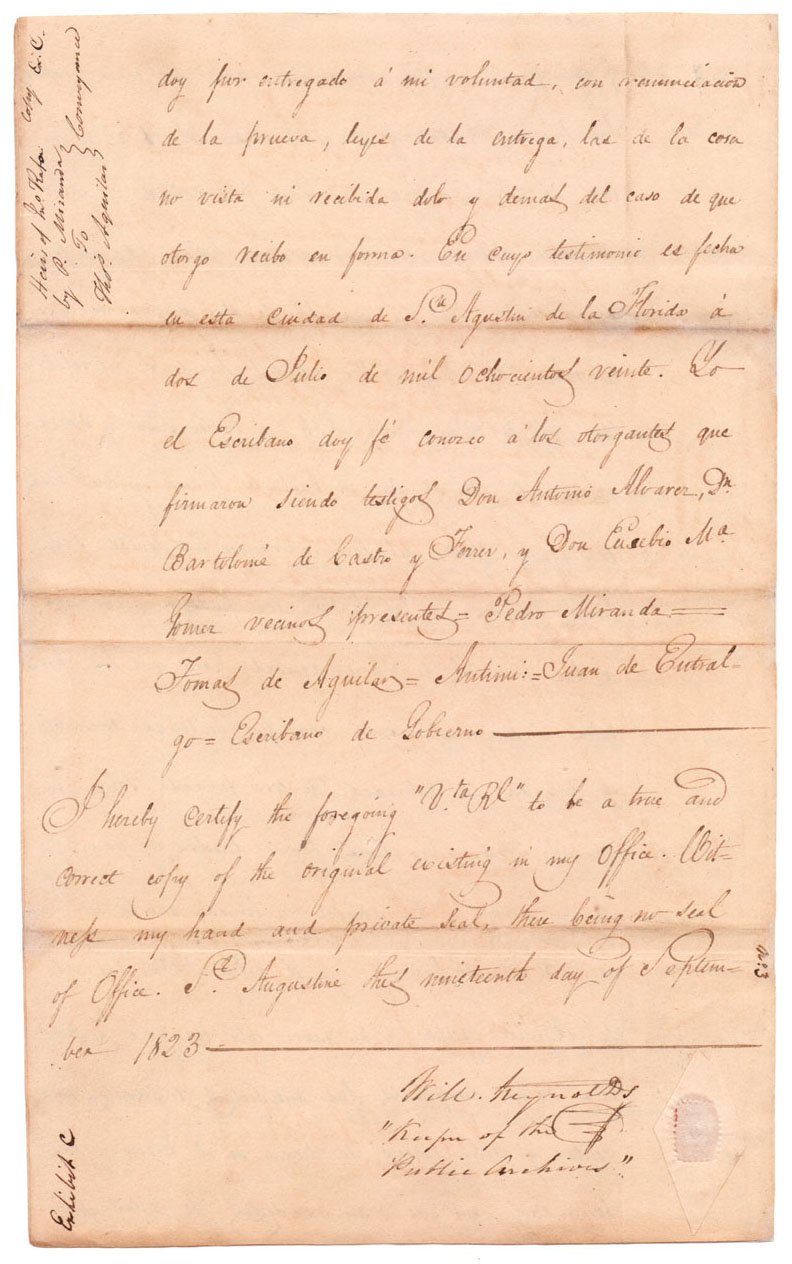 doy por entregado á mi voluntad, con renunciacion
de la prueva, leyes de la entrega, las de la cosa
no vista ni recibida dolo y demas del caso de que
otorgo recibo en forma. En cuyo testimonio es fecha
en esta Ciudad de Sn. Agustin de la Florida á
dos de Julio de mil ochocientos veinte. Yo
el Escribano doy fé conozco á los otorgantes que
firmaron siendo testigos Don Antonio Alvarez, Dn.
Bartolomé de Castro y Ferrer, y Don Eusebio Ma.
Gomez vecinos presentes = Pedro Miranda =
Tomas de Aguilar = Antimi: = Juan de Entral-
go = Escribano de Gobierno
I hereby certify the foregoing "V.ta Rl" to be a true and
correct copy of the original existing in my Office. Wit-
ness my hand and private seal, there being no seal
of Office. St. Augustine this nineteenth day of Septem-
ber 1823
Will. Reynolds
"Keepr of the
Public Archives"
Heirs of Jno
by P. Miranda
To
Thos. Aguilar
Conveyance
Copy
Exhibit C